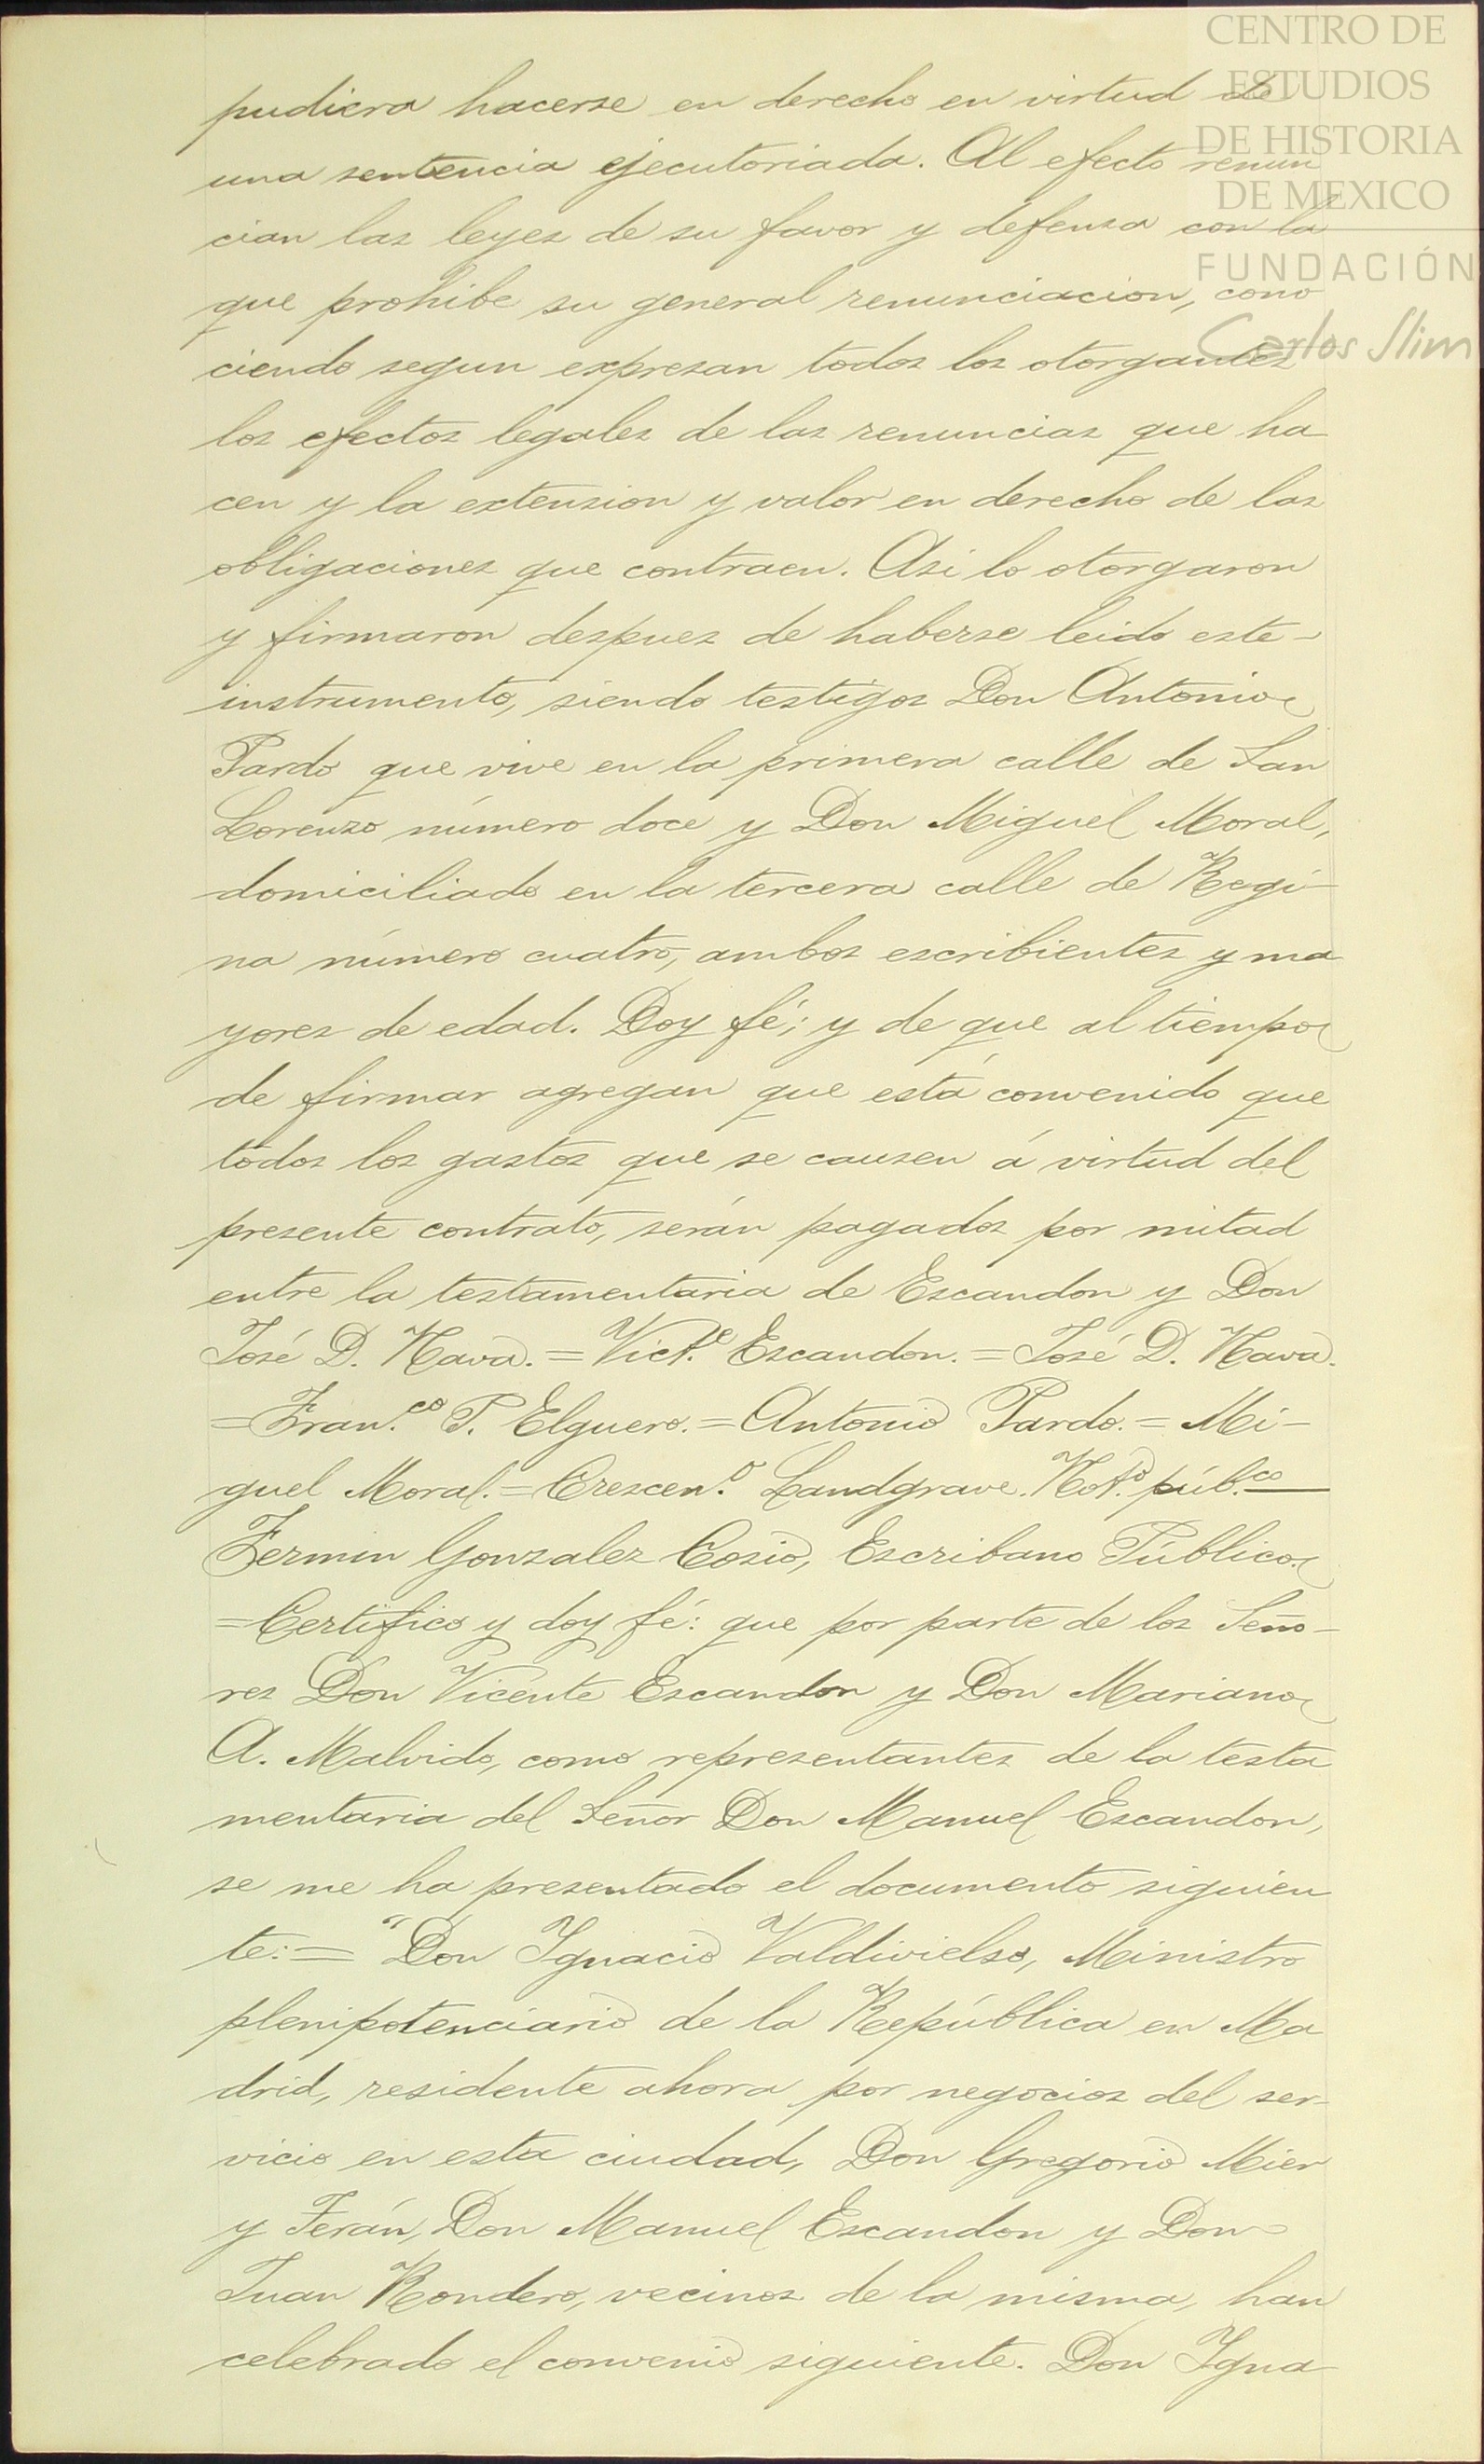 CENTRO DE
ESTUDIOS
DE HISTORIA
DE MEXICO
FUNDACIÓN
Carlos Slim
pudiera hacerse en derecho en virtud de
una sentencia ejecutoriada. Al efecto renun
cian las leyes de su favor y defensa con la
que prohibe su general renunciacion, cono
ciendo segun expresan todos los otorgantes
los efectos legales de las renuncias que ha
cen y la extension y valor en derecho de las
obligaciones que contraen. Asi lo otorgaron
y firmaron despues de haberse leido este-
instrumento, siendo testigos Don Antonio
Pardo que vive en la primera calle de San
Lorenzo número doce y Don Miguel Moral,
domiciliado en la tercera calle de Regi-
na número cuatro, ambos escribientes y ma
yores de edad. Doy fé; y de que al tiempo
de firmar agregan que está convenido que
todos los gastos que se causen á virtud del
presente contrato, serán pagados por mitad
entre la testamentaria de Escandon y Don
José D. Nava. = Vict.e Escandon. = José D. Nava.
= Fran.co P. Elguero. = Antonio Pardo. = Mi-
guel Moral. = Crescen.o Landgrave. Not.o púb.co
Fermin Gonzalez Cosio, Escribano Público
= Certifico y doy fé: que por parte de los Seño-
res Don Vicente Escandon y Don Mariano
A. Malvido, como representantes de la testa
mentaria del Señor Don Manuel Escandon,
se me ha presentado el documento siguien
te: = "Don Ignacio Valdivielso, Ministro
plenipotenciario de la República en Ma
drid, residente ahora por negocios del ser-
vicio en esta ciudad, Don Gregorio Mier
y Terán, Don Manuel Escandon y Don
Juan Rondero, vecinos de la misma, han
celebrado el convenio siguiente. Don Igna